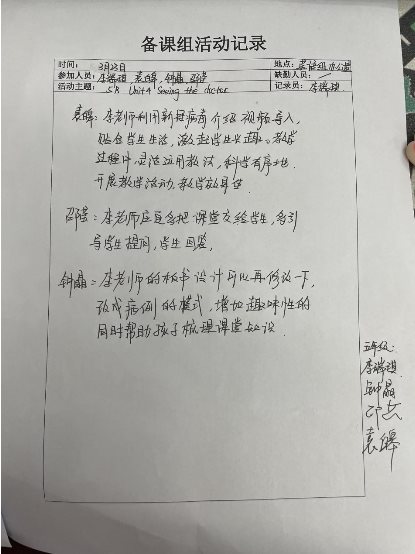 备课组活动记录
时间: 3月23日 地点: 英语组办公室
参加人员: 李灿琪 袁皞 钟晶 邵芸 缺勤人员: /
活动主题: 5B Unit4 Seeing the doctor 记录员: 李灿琪
袁皞: 李老师利用新冠病毒介绍视频导入,
贴合学生生活, 激起学生兴趣。教学
过程中灵活运用教法, 科学有序地
开展教学活动, 教学效果佳
: 李老师应更多把课堂交给学生, 多引
导学生提问, 学生回答,
钟晶: 李老师的板书设计可以再修改一下,
改成病例的模式, 增加趣味性的
同时帮助孩子梳理课堂知识.
五年级:
钟晶
袁皞